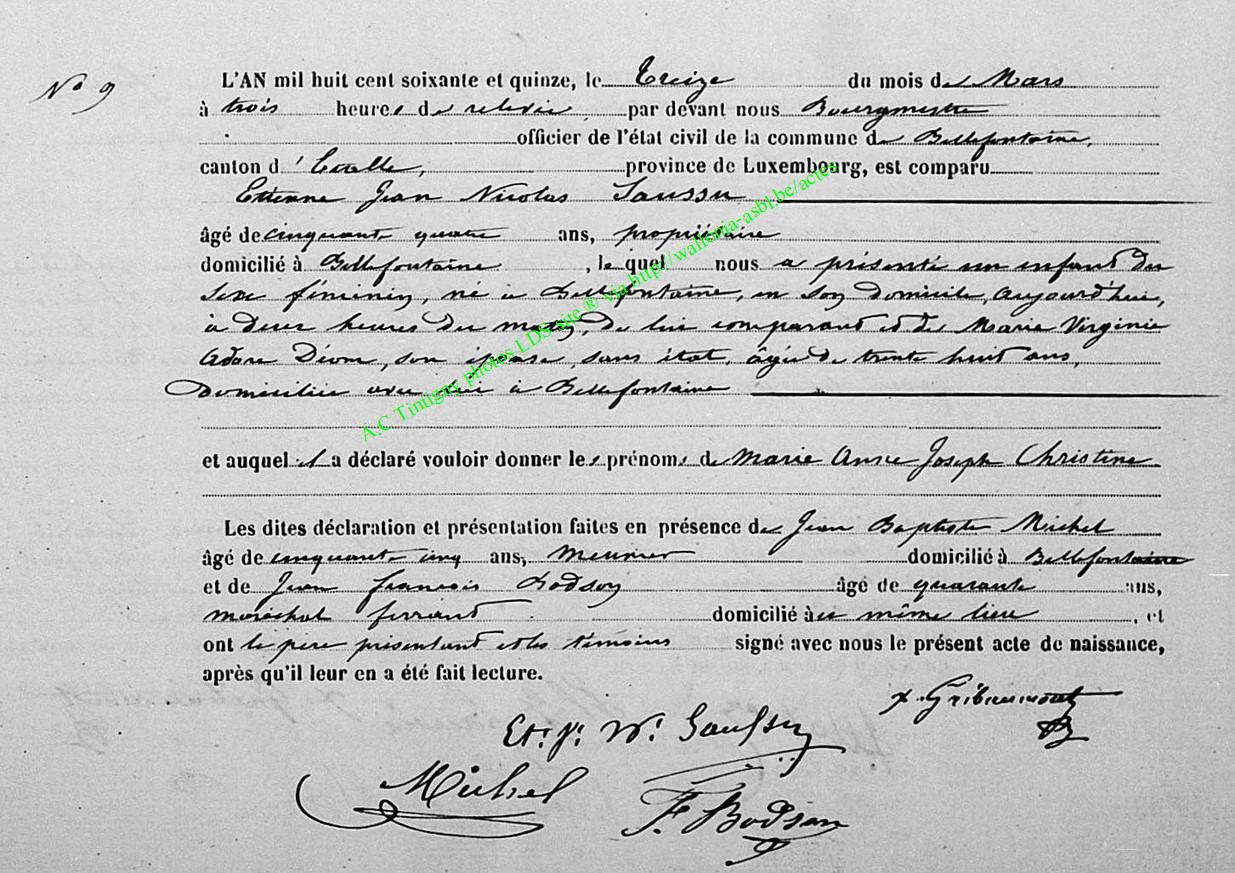 No 9
L'AN mil huit cent soixante et quinze, le treize du mois de Mars
à trois heures de relevée par devant nous Bourgmestre
officier de l'état civil de la commune de Bellefontaine,
canton d'Etalle, province de Luxembourg, est comparu
Etienne Jean Nicolas Saussu
âgé de cinquante quatre ans, propriétaire
domicilié à Bellefontaine, le quel nous a présenté un enfant du
sexe féminin, né à Bellefontaine, en son domicile, aujourd'hui,
à deux heures du matin, de lui comparant et de Marie Virginie
Adore Diom, son épouse, sans état, âgée de trente huit ans,
domiciliée avec lui à Bellefontaine
et auquel il a déclaré vouloir donner les prénoms de Marie Anne Joseph Christine
Les dites déclaration et présentation faites en présence de Jean Baptiste Michel
âgé de cinquante cinq ans, meunier domicilié à Bellefontaine
et de Jean François Bodson âgé de quarante ans,
maréchal ferrant domicilié à ce même lieu, et
ont le père présentant et les témoins signé avec nous le présent acte de naissance,
après qu'il leur en a été fait lecture.
Et. J. N. Saussu
Michel
F. Bodson
A.C Tintigny photos LDS site ® via http://wallonia-asbl.be/actea